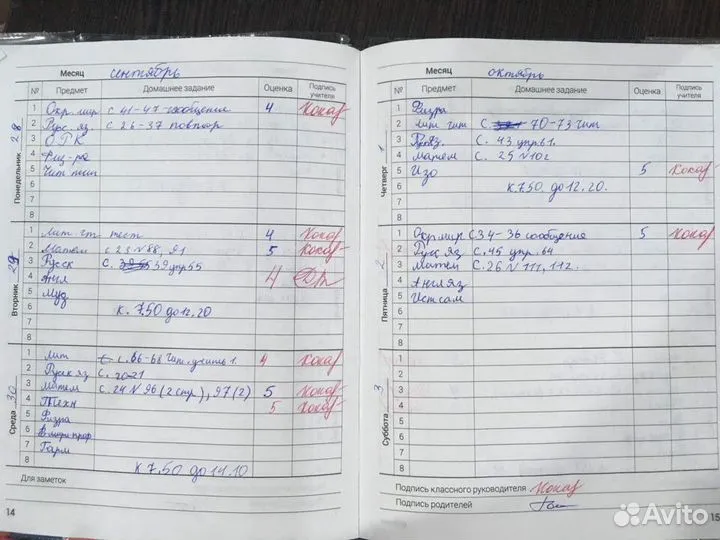 Месяц сентябрь
№ Предмет Домашнее задание Оценка Подпись учителя
Понедельник 28
1 Окр. мир с 41-47 сообщения 4 Кокаў
2 Русс. яз с 26-37 повтор
3 О.Р.К
4 Физ-ра
5 Чит
6
7
8
Вторник 29
1 Лит. чт тест 4 Кокаў
2 Матем с 23 №88, 91 5 Кокаў
3 Русск с. 39 упр 55
4 Англ 4
5 Муз
6 к. 7.50 до 12.20
7
8
Среда 30
1 Лит с. 66-68 Чит. учить 1. 4 Кокаў
2 Русск яз с. 20-21
3 Матем с. 24 №96 (2 стр), 97(2) 5 Кокаў
4 Техн 5 Кокаў
5 Физра
6 В мире проф
7 Гарм
8 к 7.50 до 14.10
Для заметок
14
Месяц октябрь
№ Предмет Домашнее задание Оценка Подпись учителя
Четверг 1
1 Физра
2 Лит чит с. 70-73 чит
3 Русяз. с. 43 упр 61.
4 Матем с. 25 №102
5 Изо 5 Кокаў
6 к 7.50 до 12.20.
7
8
Пятница 2
1 Окр. мир с 34-36 сообщение 5 Кокаў
2 Русс яз с. 45 упр. 64
3 Матем с. 26 № 111, 112.
4 Англ яз
5 Ист сам
6
7
8
Суббота 3
1
2
3
4
5
6
7
8
Подпись классного руководителя Кокаў
Подпись родителей
15
Avito